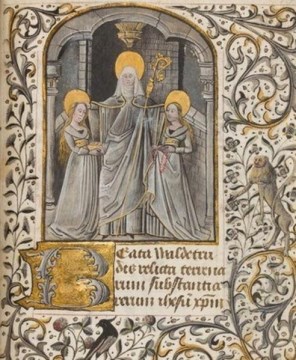 Beata Waldetru
dis relicta terena
rum substantia
rerum ihesu xpm